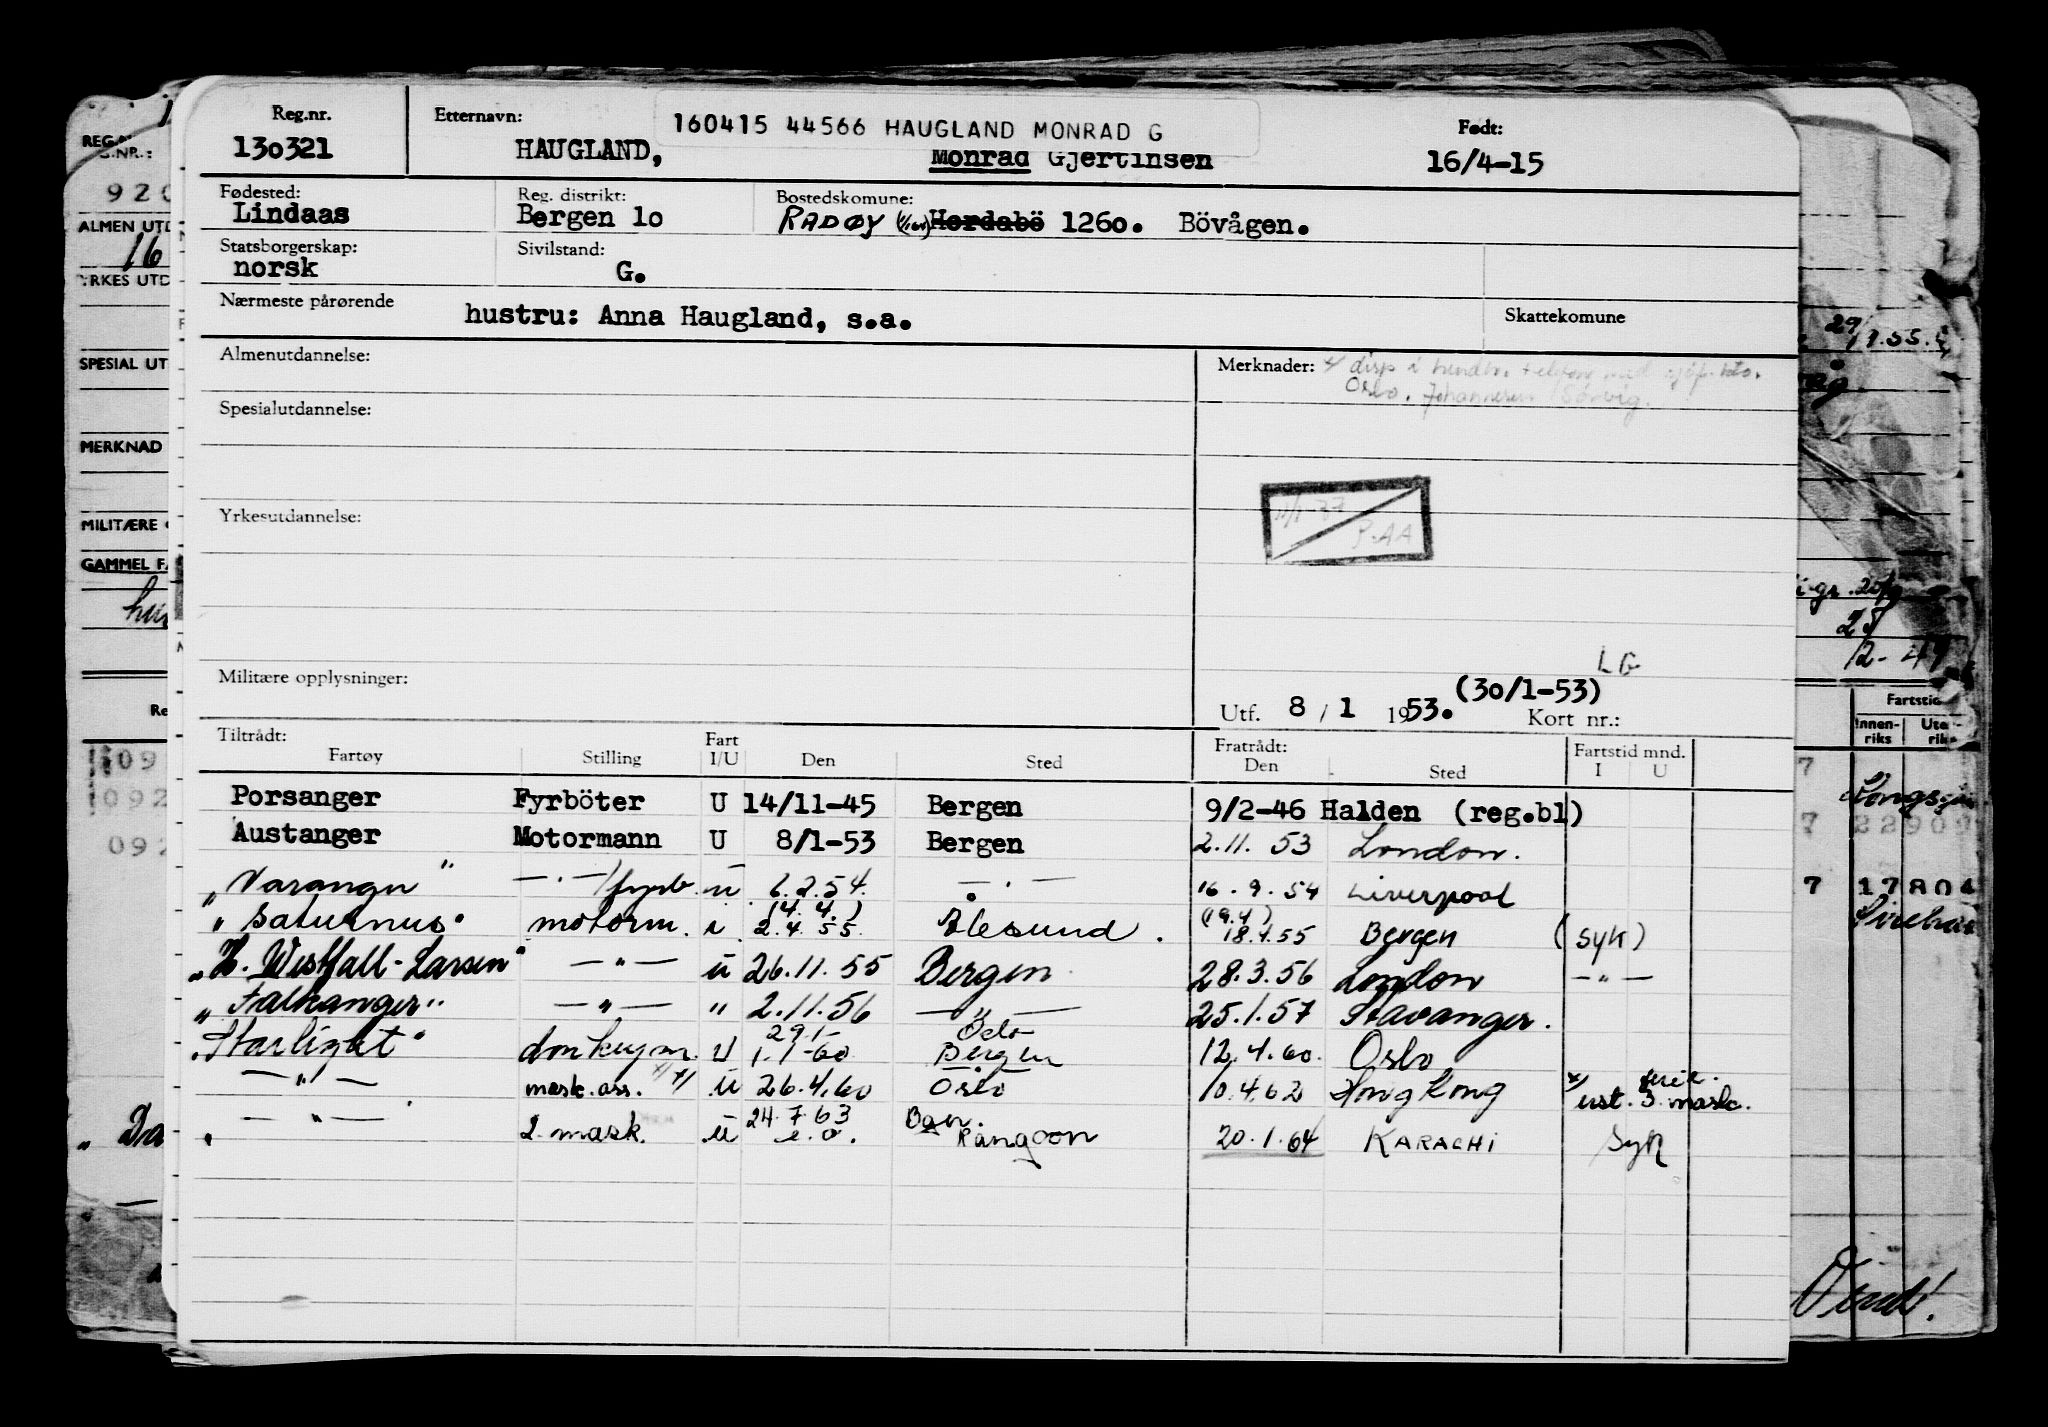 Reg.nr. Etternavn: 160415 44566 HAUGLAND MONRAD G Født:
130321 HAUGLAND, Monrad Gjertinsen 16/4-15
Fødested: Reg. distrikt: Bostedskomune:
Lindaas Bergen 1o RADØY Hordabö 126o. Bövågen.
Statsborgerskap: Sivilstand:
norsk G.
Nærmeste pårørende hustru: Anna Haugland, s.a. Skattekomune
Almenutdannelse: Merknader:
Oslo.
Spesialutdannelse:
Yrkesutdannelse:
LG
Militære opplysninger: (30/1-53)
Utf. 8 / 1 1953. Kort nr.:
Tiltrådt: Fart Fratrådt: Fartstid mnd.
Fartøy Stilling I/U Den Sted Den Sted I U
Porsanger Fyrböter U 14/11-45 Bergen 9/2-46 Halden (reg.bl)
Austanger Motormann U 8/1-53 Bergen 2.11. 53 London.
"Varanger" —"—/fyrb. u 6.2.54. —"— 16.9.54 Liverpool
(4.4.) (19.4)
"Saturnus" motorm. i 2.4.55. Ålesund. 18.4.55 Bergen (syk)
"H. Westfall-Larsen" —"— u 26.11.55 Bergen 28.3.56 London —"—
"Falkanger" —"— " 2.11.56 —"— 25.1.57 Stavanger.
29/1- Oslo
"Starlight" donkeym. U 1.1-60 Bergen 12.4.60. Oslo
—"— mask.ass. x/ x/ u 26.4.60 Oslo 10.4.62 Hong Kong x/ ust. 3. mask.
24.7.63 Bgn.
—"— 2. mask. u e.o. Rangoon 20.1.64 KARACHI Syk
REG.
S.NR.:
920
ALMEN UTD
16
YRKES UTD
SPESIAL UT
MERKNAD
MILITÆRE
GAMMEL FA
Re
109
1092
092
29/1.55.
25
12-47
Fartstid
Innen-riks Ute-rik
7
7 22909
7 17804